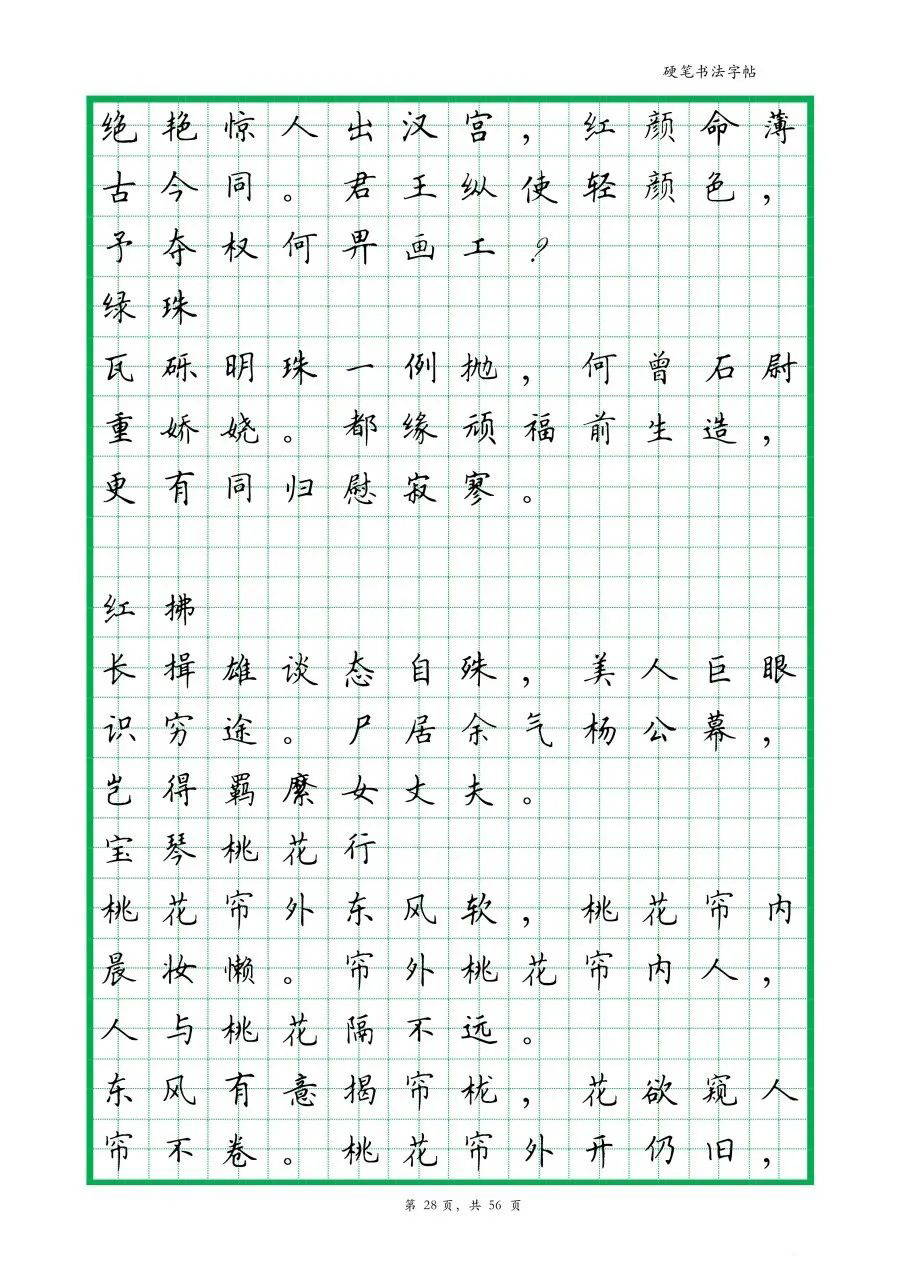 硬笔书法字帖
绝艳惊人出汉宫，红颜命薄
古今同。君王纵使轻颜色，
予夺权何畀画工？
绿珠
瓦砾明珠一例抛，何曾石尉
重娇娆。都缘顽福前生造，
更有同归慰寂寥。
红拂
长揖雄谈态自殊，美人巨眼
识穷途。尸居余气杨公幕，
岂得羁縻女丈夫。
宝琴桃花行
桃花帘外东风软，桃花帘内
晨妆懒。帘外桃花帘内人，
人与桃花隔不远。
东风有意揭帘栊，花欲窥人
帘不卷。桃花帘外开仍旧，
第 28 页，共 56 页